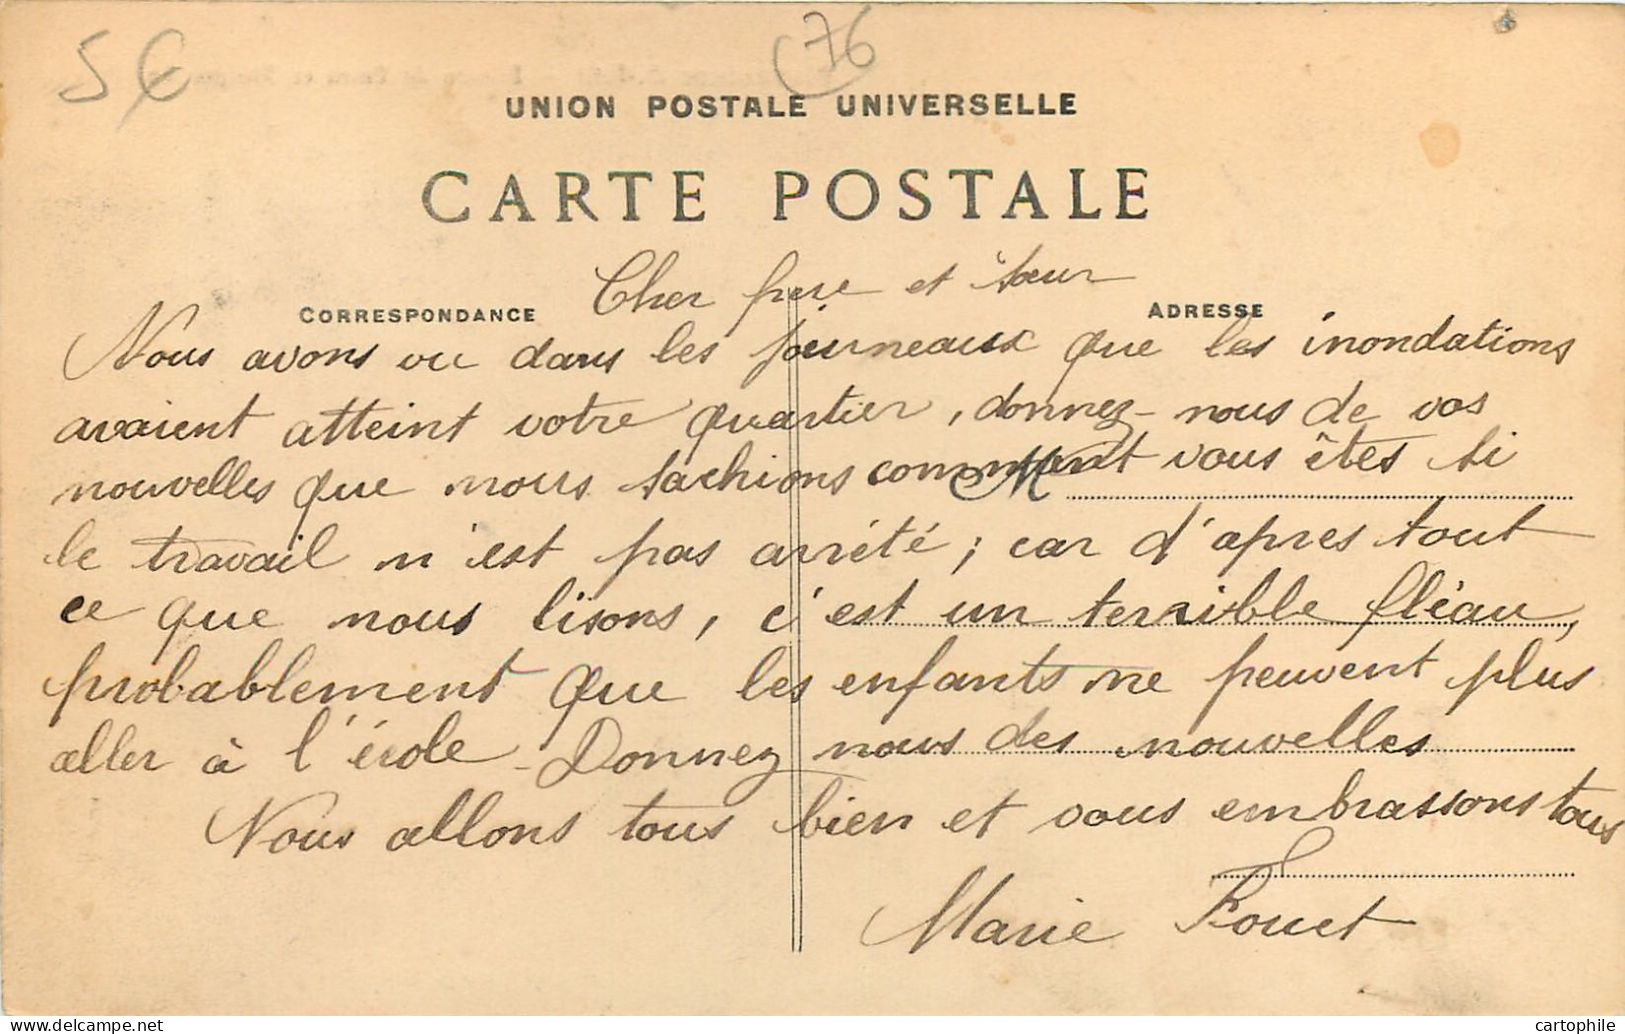 5€
76
UNION POSTALE UNIVERSELLE
CARTE POSTALE
Cher frere et sœur
CORRESPONDANCE
ADRESSE
Nous avons vu dans les journeaux que les inondations
avaient atteint votre quartier, donnez-nous de vos
nouvelles que nous sachions comment vous êtes si
M
le travail n'est pas arrété; car d'apres tout
ce que nous lisons, c'est un terrible fléau,
probablement que les enfants ne peuvent plus
aller à l'école - Donnez nous des nouvelles
Nous allons tous bien et vous embrassons tous
Marie Fouet
cartophile
delcampe.net